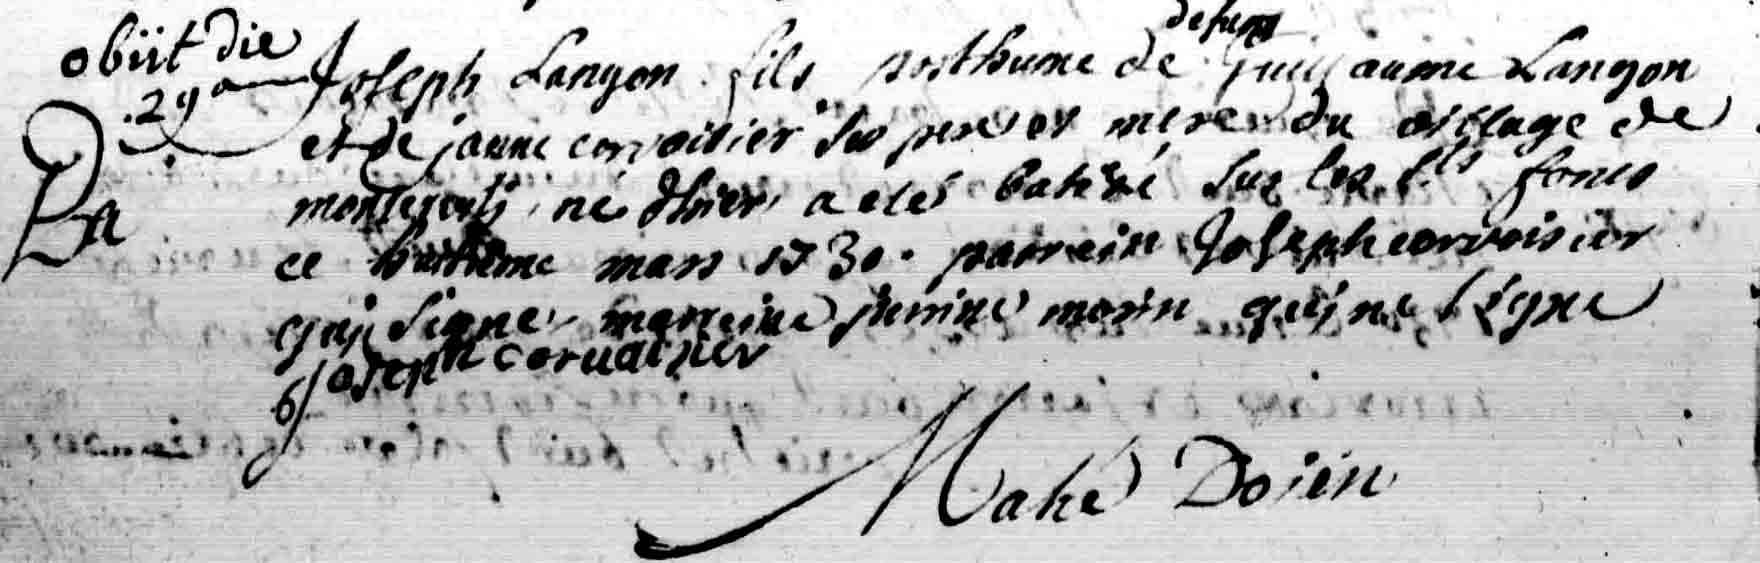 obiit die
29a
Bn
defunt
Joseph Langon fils posthume de Guillaume Langon
et de janne corvoisier ses pere et mere du village de
né d'hier a eté batisé sur les sts fonts
ce huitieme mars 1730. parrein Joseph corvoisier
qui signe marreine perrine morin qui ne signe
Joseph corvaisier
Mahé Doien